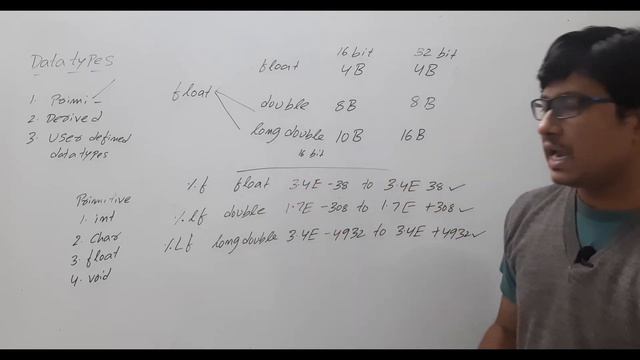 Datatypes
1. Primi -
2. Derived
3. User defined
datatypes
Primitive
1. int
2. Char
3. float
4. void
16 bit 32 bit
float 4B 4B
float
double 8B 8B
long double 10B 16B
16 bit
%f float 3.4E -38 to 3.4E 38 ✓
%lf double 1.7E -308 to 1.7E +308 ✓
%Lf long double 3.4E -4932 to 3.4E +4932 ✓